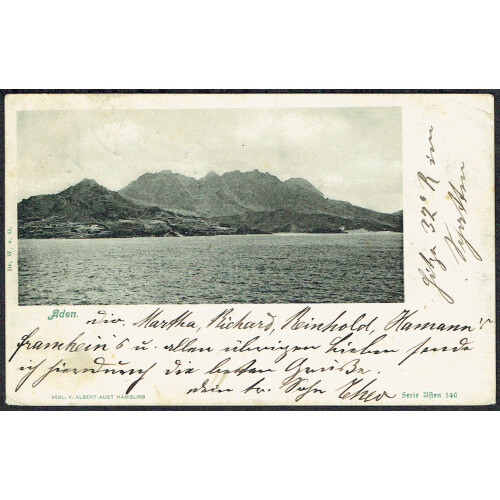 Aden.
dir, Martha, Richard, Reinhold, Hamann's
framhein's u. allen übrigen Lieben sende
ich hierdurch die besten Grüße.
dein tr. Sohn Theo
VERL. V. ALBERT AUST HAMBURG
Serie Asien 140
Dr. W. v. G.
Hitze 32° R im
Schatten